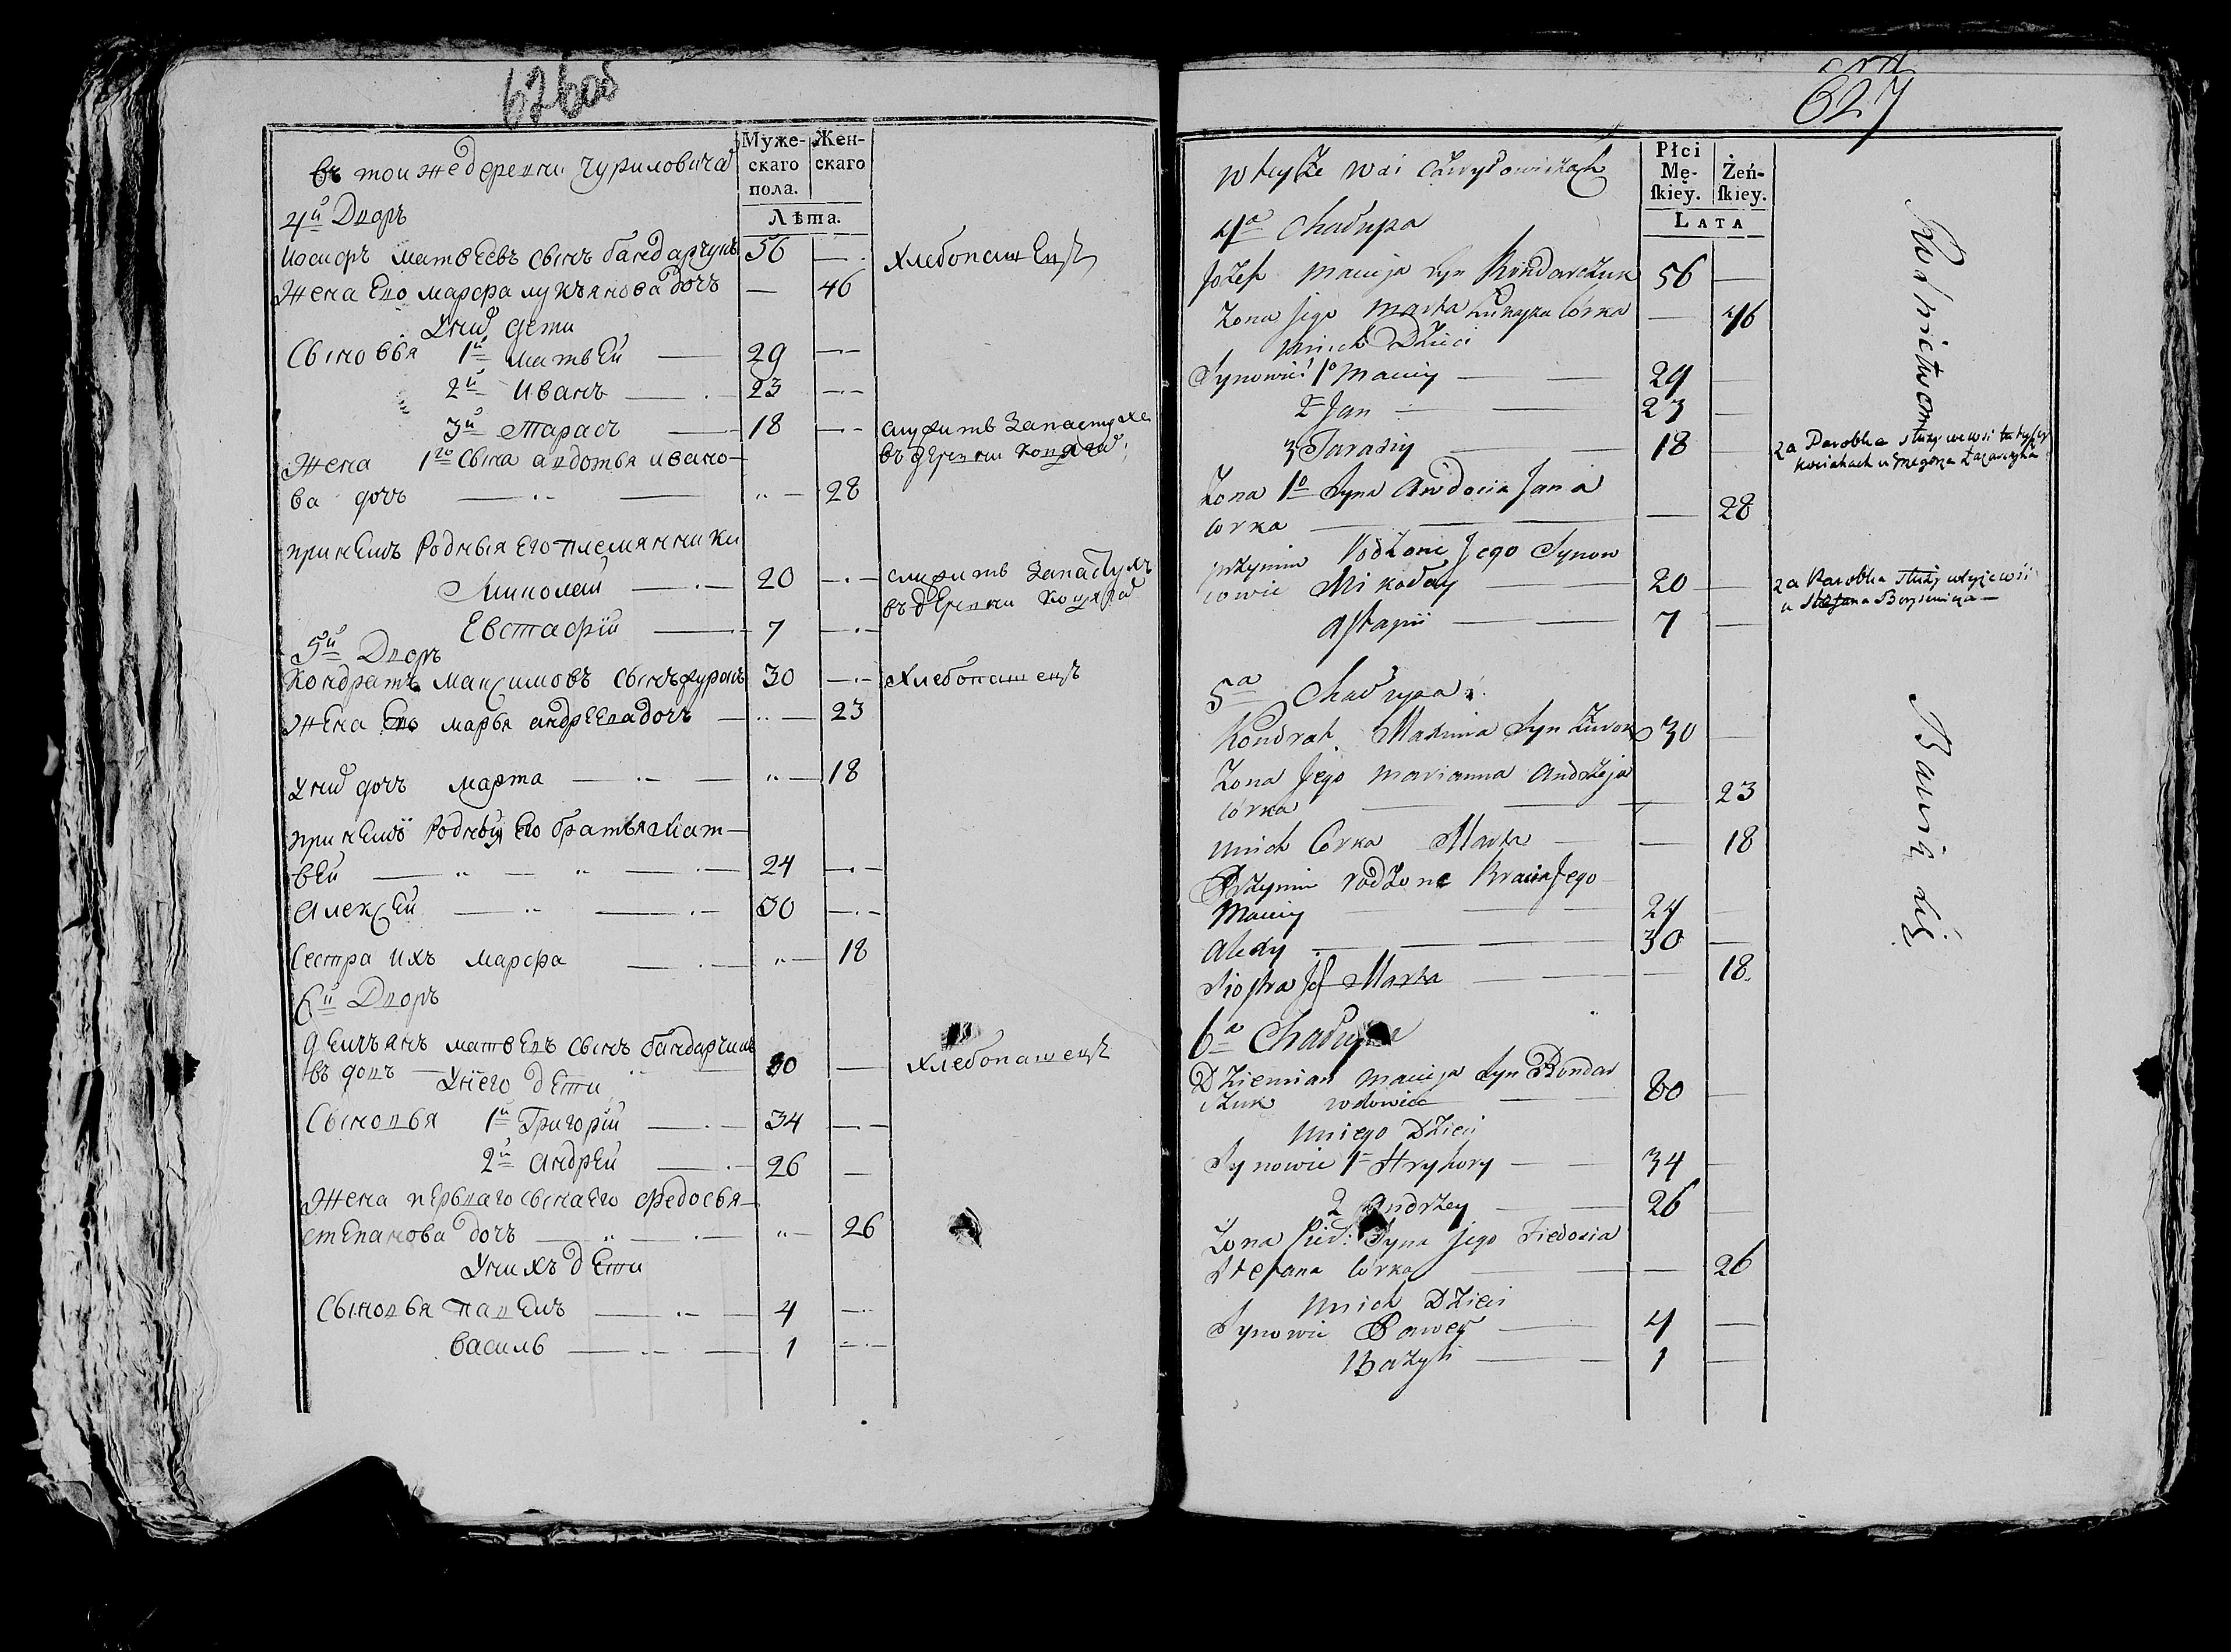 626об
Муже-
скаго
пола.
Жен-
скаго
Лѣта.
въ тои же деревни Чуриловича
4й Дворъ
Иосифъ Матвеевъ сынъ бандарчукъ 56 —
хлебопашецъ
Жена Его Марфа лукъянова дочъ — 46
У нихъ дети
Сыновья 1й Матвей — 29 —
2й Иванъ — 23 —
3й Тарасъ — 18 —
служитъ
въ деревни
Жена 1го сына авдотья ивано-
ва дочъ — 28
при немъ Родныя Его племянники
Николай — 20 —
служитъ
въ деревни
Евстафiй — 7 —
5й Дворъ
Кондратъ Максимовъ сынъ журокъ 30 —
хлебопашецъ
Жена Его марья андреева дочъ — 23
У них дочъ марта — 18
при немъ Родныя Его братья Мат-
вей — 24 —
Алексей — 30 —
Сестра ихъ марфа — 18
6й Дворъ
демъянъ матвевъ сынъ бандарчукъ
вдовъ — 80 —
хлебопашецъ
У него дети
Сыновья 1й Григорiй — 34 —
2й Андрей — 26 —
Жена перваго сына Его Федосья
степанова дочъ — 26
У нихъ дети
Сыновья павелъ — 4 —
василь — 1 —
627
Płci
Mę-
ſkiey.
Żeń-
ſkiey.
LATA
w teyże wsi Czuryłowiczach
4a Chałupa
Jozef Macieja Syn Bondarczuk 56 —
Zona Jego Marta Łukasza Córka — 46
U nich Dzieci
Synowie 1o Maciey — 29 —
2 Jan — 23 —
3 Tarasiy — 18 —
za Parobka służy we wsi
Zona 1o Syna Awdocia Jana
Corka — 28
przynim Rodzoni Jego Synow
cowie Mikołay — 20 —
za Parobka służy wteyżewsi
u Stefana
Astapii — 7 —
5a Chałupa
Kondrat Maxima Syn Żurok 30 —
Zona Jego Marianna Andrzeja
Córka — 23
Unich Córka Marta — 18
Przynim rodzone Bracia Jego
Maciey — 24 —
Alexy — 30 —
Siostra Marta — 18
6a Chałupa
Dziemian Macieja Syn Bondar
czuk wdowiec — 80 —
Uniego Dzieci
Synowie 1 Hryhory — 34 —
2 Andrzey — 26 —
Zona Syna Jego Fiedosia
Stefana Córka — 26
Unich Dzieci
Synowie Paweł — 4 —
Bazyli — 1 —
Rolnictwem Bawią się